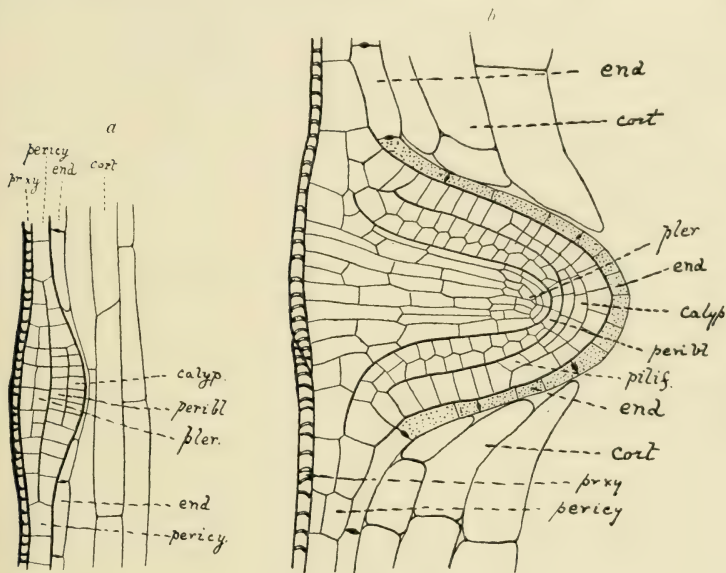 a
pericy
prxy end cort
calyp.
peribl
pler.
end
pericy.
b
end
cort
pler
end
calyp
peribl
pilif.
end
cort
prxy
pericy